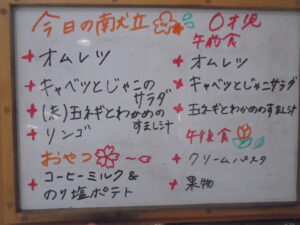 今日の献立
+ オムレツ
+ キャベツとじゃこの
サラダ
+ (赤)玉ネギとわかめの
すまし汁
+ リンゴ
おやつ
+ コーヒーミルク&
のり塩ポテト
0才児
午前食
+ オムレツ
+ キャベツとじゃこサラダ
+ 玉ネギとわかめの
すまし汁
午後食
+ クリームパスタ
+ 果物